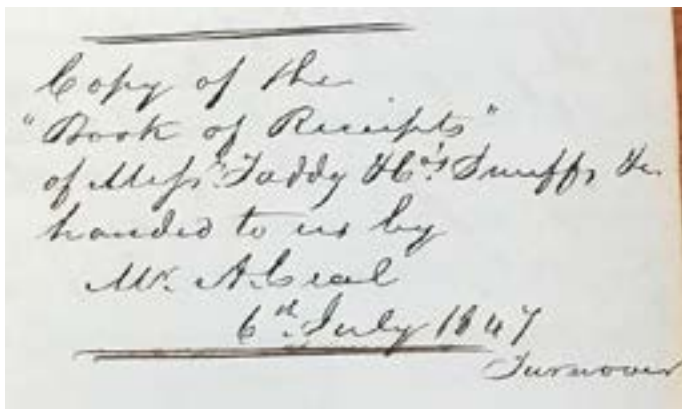 Copy of the
"Book of Receipts"
of Messrs. Taddy & Co's Snuffs &c.
handed to us by
Mr. A. Ceal
6th. July 1847
Turnover